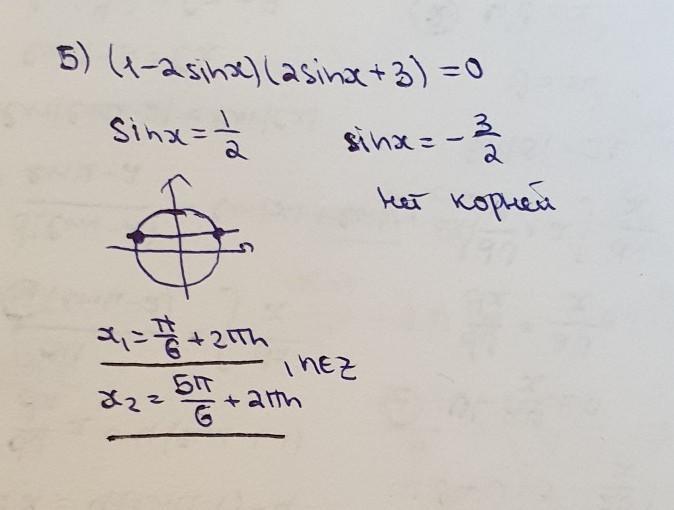 5) (1-2sinx)(2sinx+3)=0
sinx=1/2 sinx=-3/2
нет корней
x₁=π/6+2πn
, n∈Z
x₂=5π/6+2πn